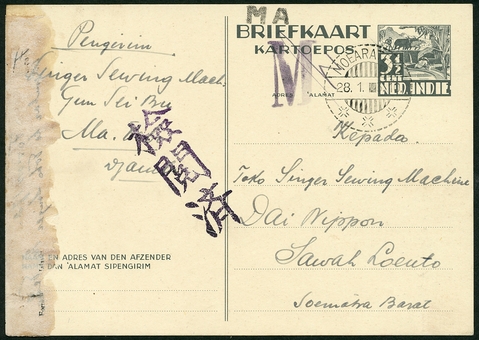 MA
BRIEFKAART
KARTOEPOS
3½
CENT
NED. INDIE
M
ADRES ALAMAT
MOEARA
28.1.
Pengirim
Singer Sewing Mach
Gun Sei Bu
Ma.
Djam
検閲済
Kepada
Toko Singer Sewing Machine
Dai Nippon
Sawah Loento
Soematra Barat
EN ADRES VAN DEN AFZENDER
DAN ALAMAT SIPENGIRIM